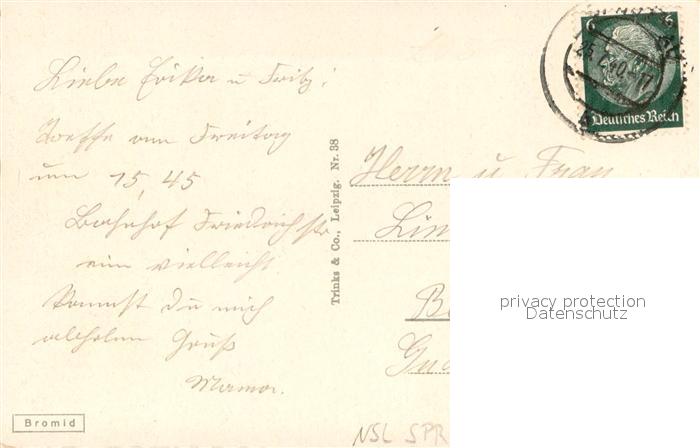 Liebe Erika u Fritz!
Treffe am Freitag
um 15,45
Bahnhof Friedrichstr
ein vielleicht
kannst du mich
abholen Gruß
Mama.
Bromid
Trinks & Co., Leipzig. Nr. 38
6 6
25. 40.-17
Deutsches Reich
Herrn u Frau
Lin
B
privacy protection
Datenschutz
NSL SPR